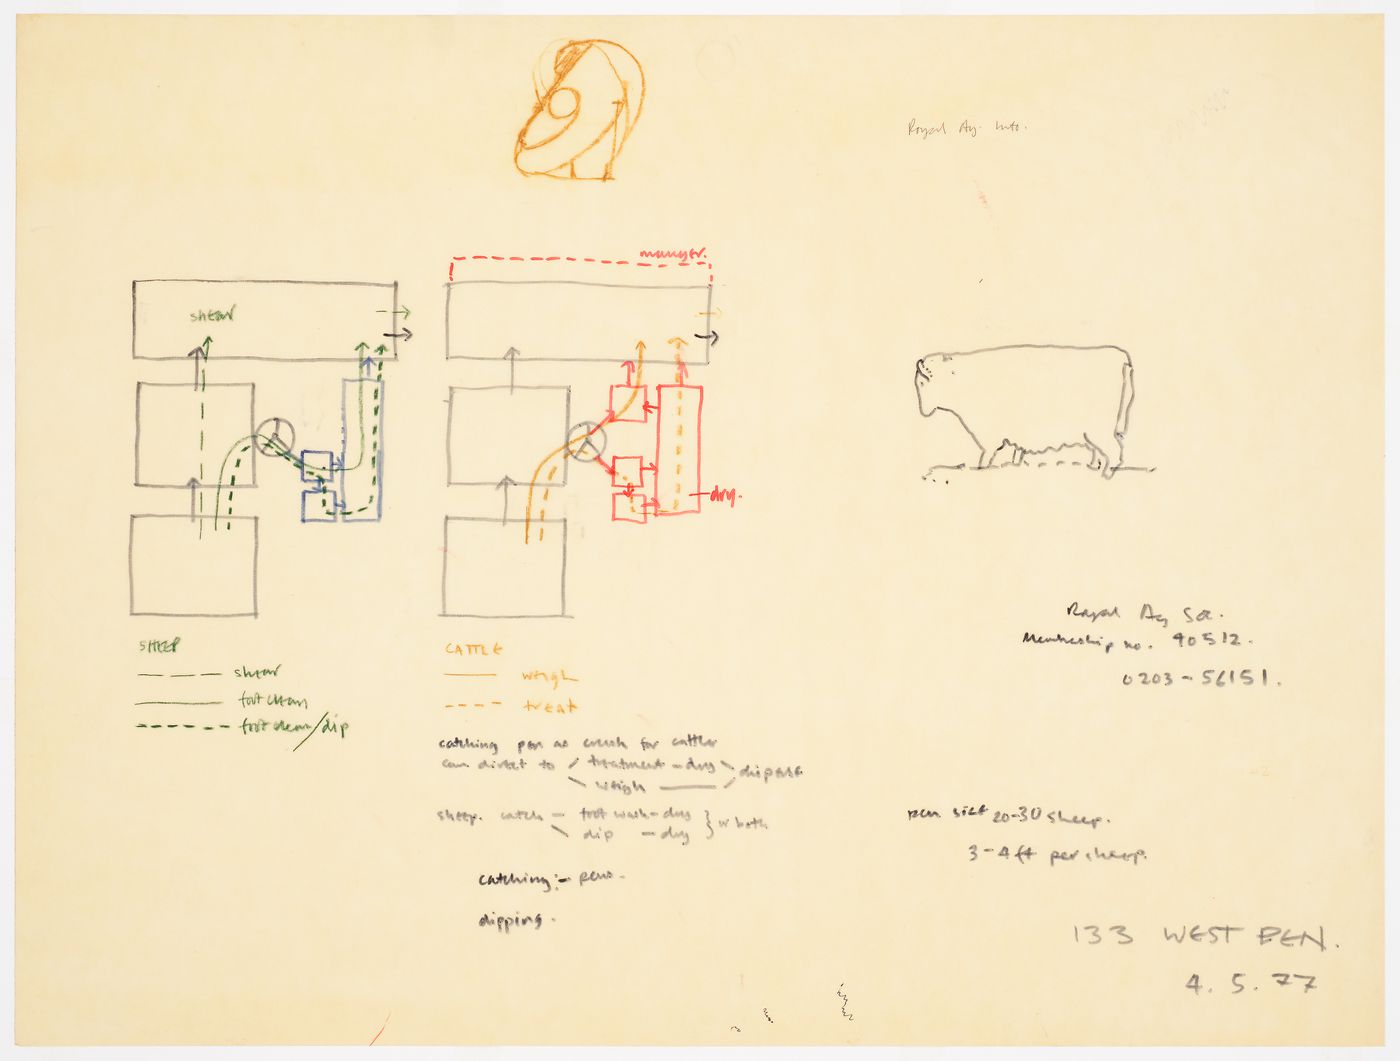 Royal Ag. Info.
manger.
shear
dry.
SHEEP
shear
foot clean
foot clean/dip
CATTLE
weigh
treat
catching pen as crush for cattle
can direct to / treatment - dry \ disperse
\ weigh — /
sheep. catch — foot wash - dry } or both
\ dip — dry
catching :- pens.
dipping.
Royal Ag Soc.
Membership no. 90512.
0203-56151.
pen size 20-30 sheep.
3-4 ft per sheep.
133 WEST PEN.
4.5.77